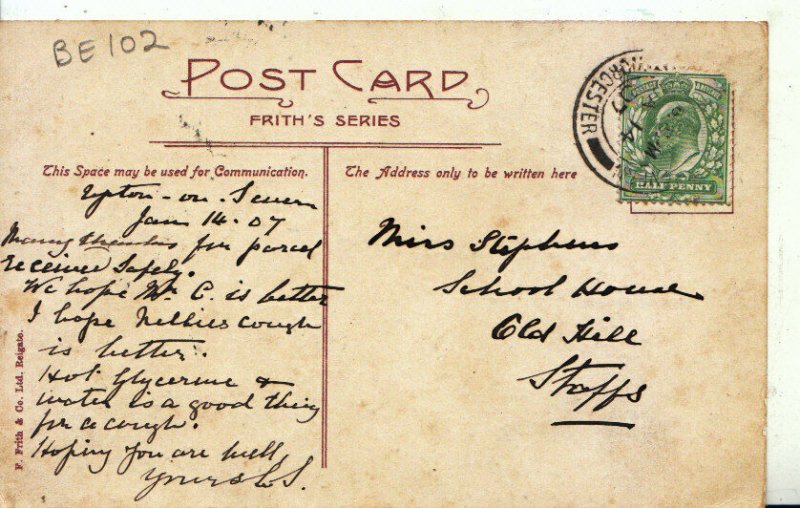 BE102
POST CARD
FRITH'S SERIES
This Space may be used for Communication.
The Address only to be written here
Upton-on-Severn
Jan 14-07
Many thanks for parcel
receive safely.
We hope Mr. C. is better
I hope Nellies cough
is better.
Hot Glycerine &
water is a good thing
for a cough.
Hoping you are well
Yours S.
Miss Stephens
School House
Old Hill
Staffs
WORCESTER
JA 14
07
HALF PENNY
F. Frith & Co. Ltd. Reigate.